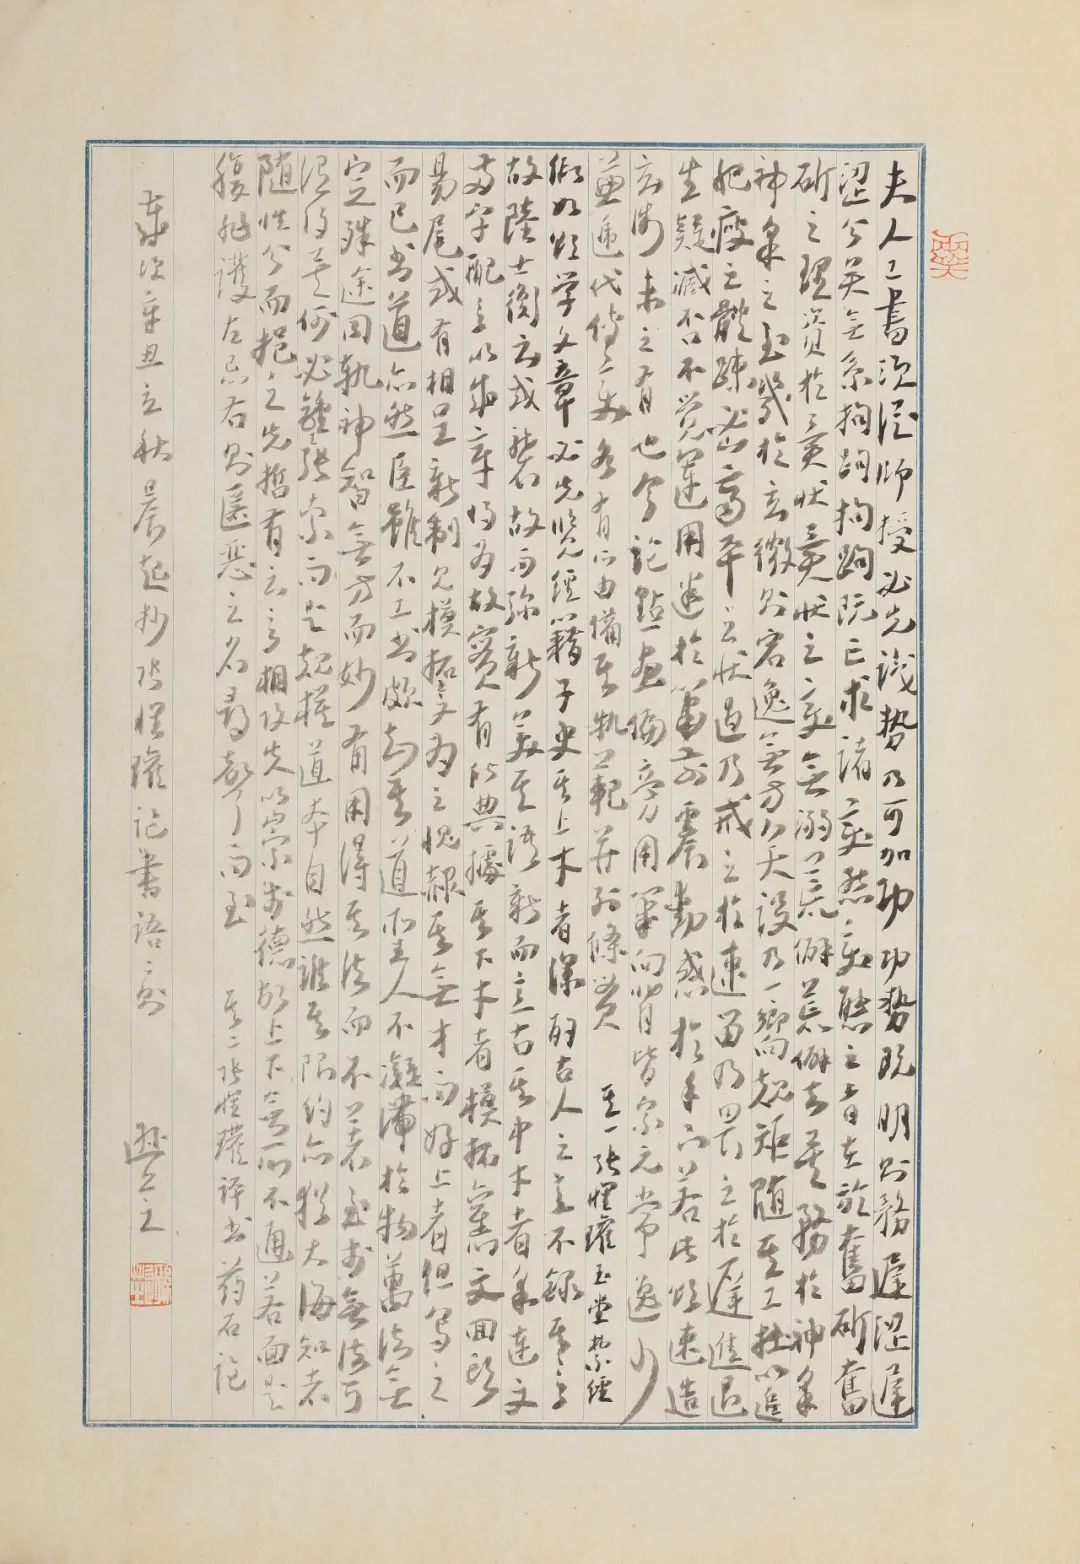 夫人工書須從師授必先識勢乃可加功功勢既明則務遲澀遲
澀分矣無系拘跼拘跼既亡求諸變態變態之旨在於奮斫奮
斫之理資於異狀異狀之變無溺荒僻荒僻去矣務於神采
神采之至幾於玄微則宕逸無方矣設乃一向規矩隨其工拙以追
肥瘦之體疏密齊平之狀過乃戒之於速留乃畏之於遲進退
生疑臧否不覺運用迷於筆前震動惑於手下若此欲速造
玄微未之有也今記點畫偏旁用筆向背皆宗元常逸少
兼遞代傳變各有所由備其軌範並列條貫 其一張懷瓘玉堂禁經
假如欲學文章必先覽經籍子史其上才者深酌古人之意不錄其言
故陸士衡云或襲故而彌新美其語新而立古其中才者采連文
兩字配言以成章將為故實有所典據其下才者模拓舊文回頭
易尾或有相呈新製見模拓之文為之愧赧其無才而好上者但寫之
而已書道亦然臣雖不工書頗知其道聖人不凝滯於物萬法無
定殊途同軌神智無方而妙有用得其法而不著至於無法可
謂得矣何必鍾張索而是規模道本自然誰其限約亦猶大海知者
隨性分而挹之先哲有云言相攻失以崇於德故上下無所不通若面是
腹非護左忌右則匿惡之名尋聲而至 其二張懷瓘評書藥石論
歲次辛丑立秋晨起抄張懷瓘論書語二則